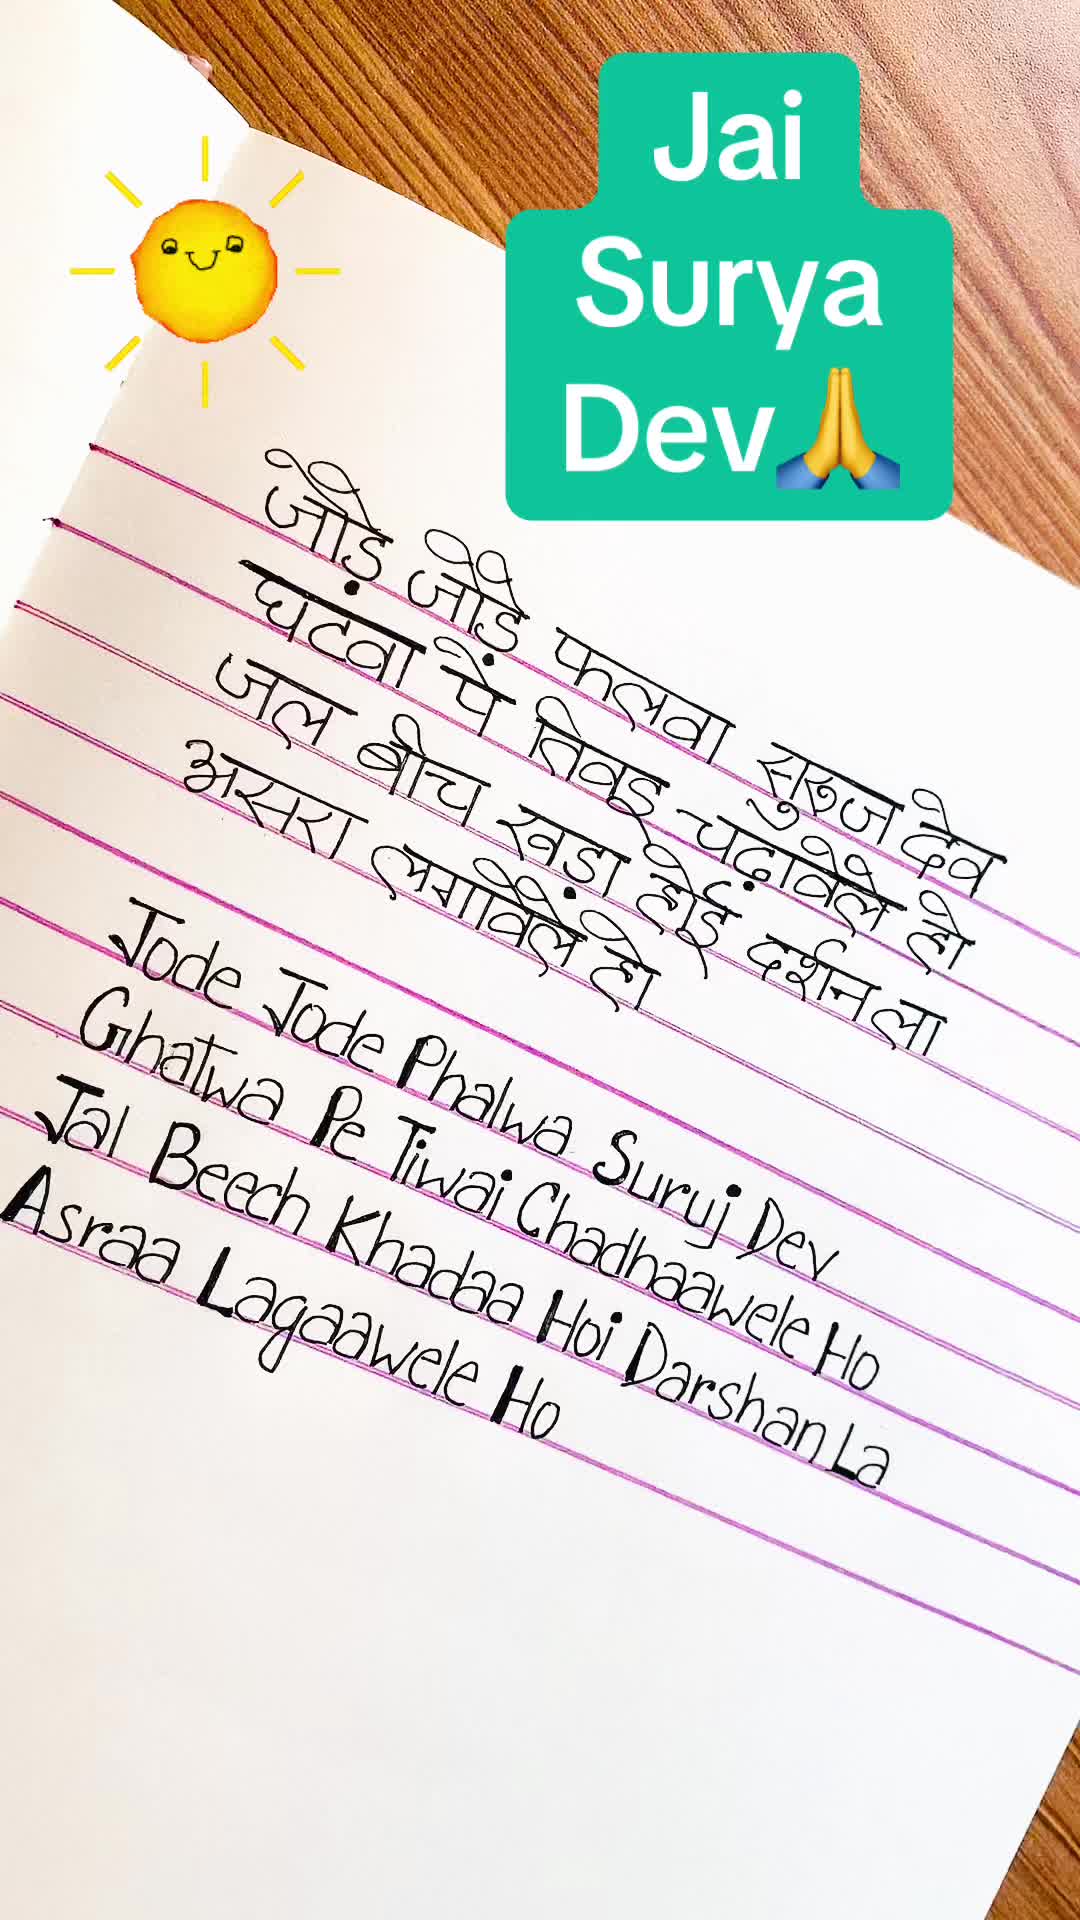 Jai
Surya
Dev🙏
जोड़े जोड़े फलवा सुरुज देव
घटवा पे तिवई चढ़ावेले हो
जल बीच खड़ा होई दर्शन ला
असरा लगावेलें हो
Jode Jode Phalwa Suruj Dev
Ghatwa Pe Tiwai Chadhaawele Ho
Jal Beech Khadaa Hoi Darshan La
Asraa Lagaawele Ho